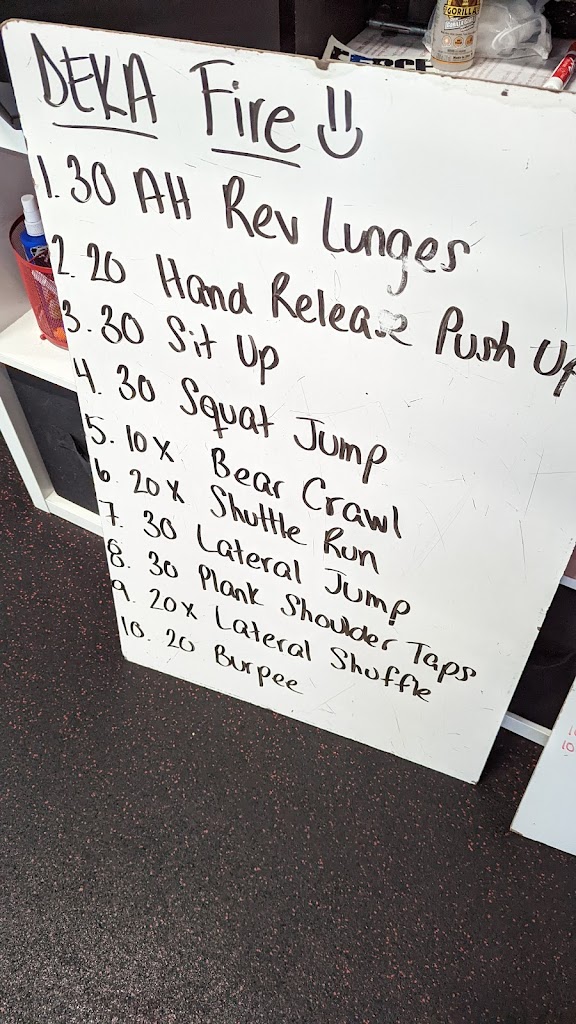 GORILLA
DEKA Fire
1. 30 AH Rev Lunges
2. 20 Hand Release Push Up
3. 30 Sit Up
4. 30 Squat Jump
5. 10x Bear Crawl
6. 20x Shuttle Run
7. 30 Lateral Jump
8. 30 Plank Shoulder Taps
9. 20x Lateral Shuffle
10. 20 Burpee